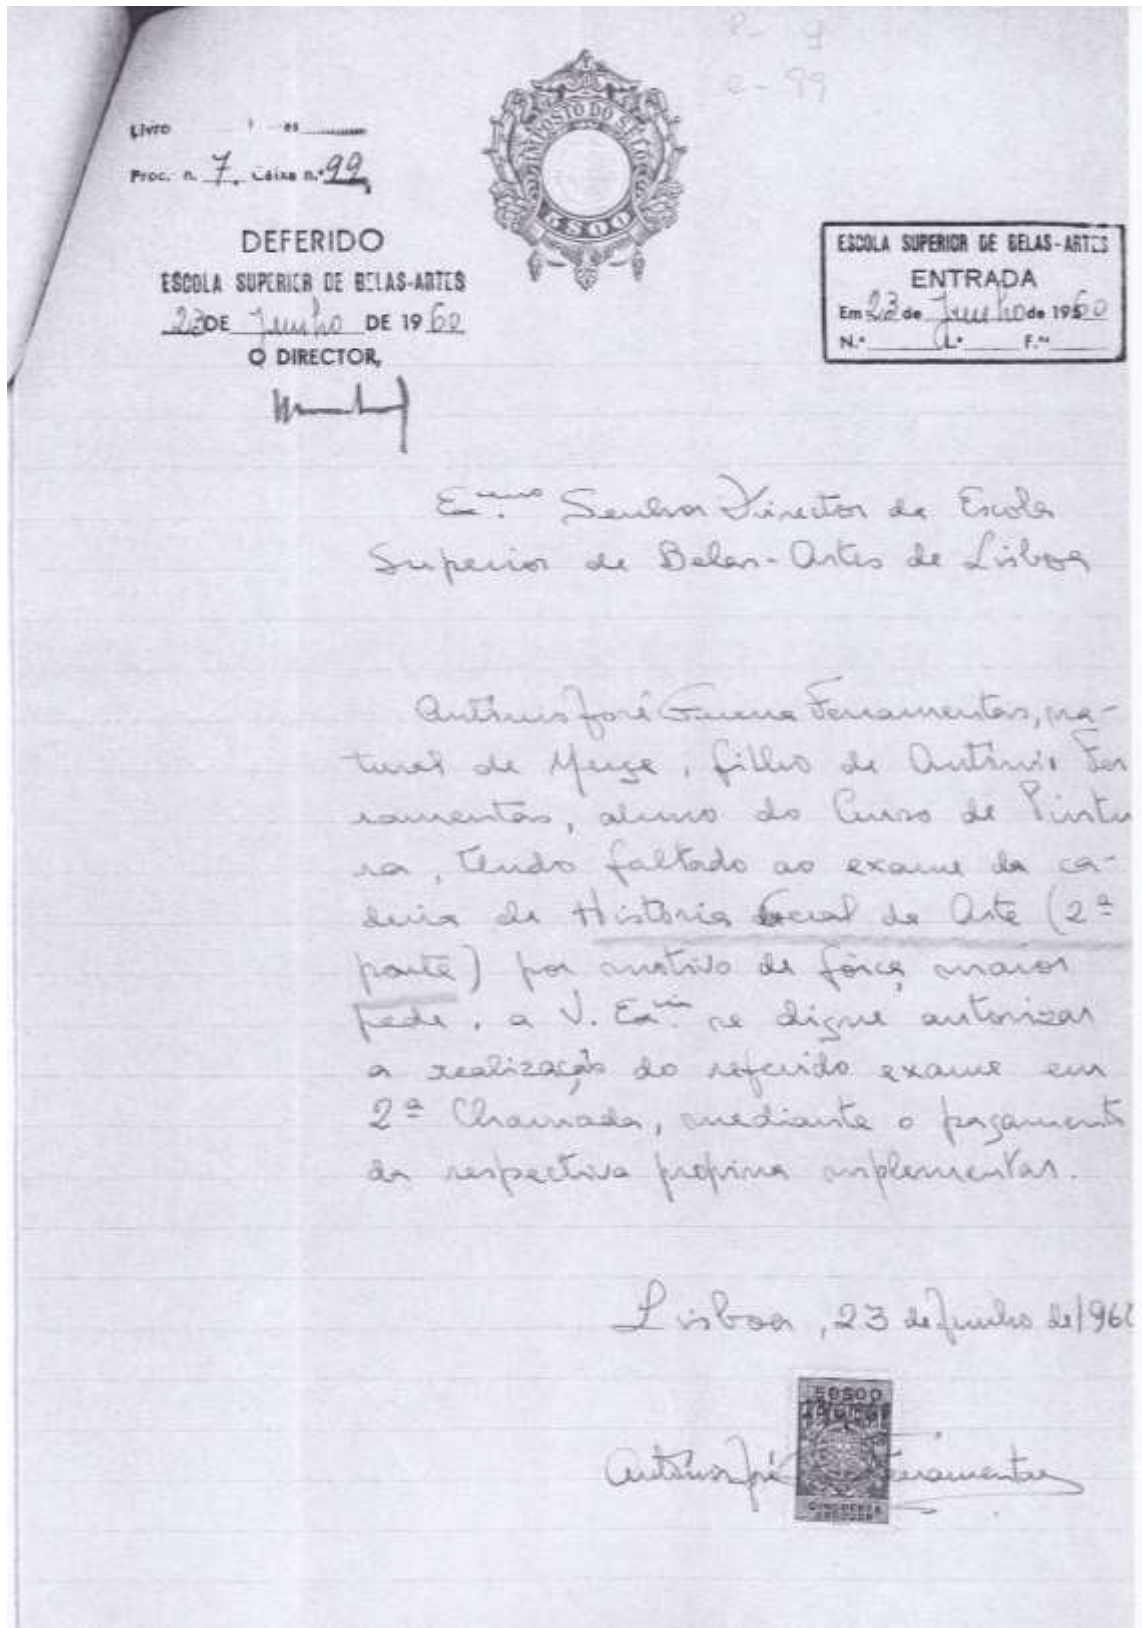 P- 7
C- 99
IMPOSTO DO SELO
Livro
Proc. n. 7. Caixa n.º 99
DEFERIDO
ESCOLA SUPERIOR DE BELAS-ARTES
23 DE Junho DE 1960
O DIRECTOR,
ESCOLA SUPERIOR DE BELAS-ARTES
ENTRADA
Em 23 de Junho de 1960
N.º L.º F.ªˢ
Ex.mo Senhor Director da Escola
Superior de Belas-Artes de Lisboa
António José Guerra Ferramentas, na-
tural de Muge, filho de António Fer
ramentas, aluno do Curso de Pintu
ra, tendo faltado ao exame da ca-
deira de História Geral da Arte (2ª
parte) por motivo de fôrça maior
pede, a V. Ex.cia se digne autorizar
a realização do referido exame em
2ª Chamada, mediante o pagamento
da respectiva propina suplementar.
Lisboa, 23 de Junho de 196
50$00
CINQUENTA
ESCUDOS
António José Ferramentas